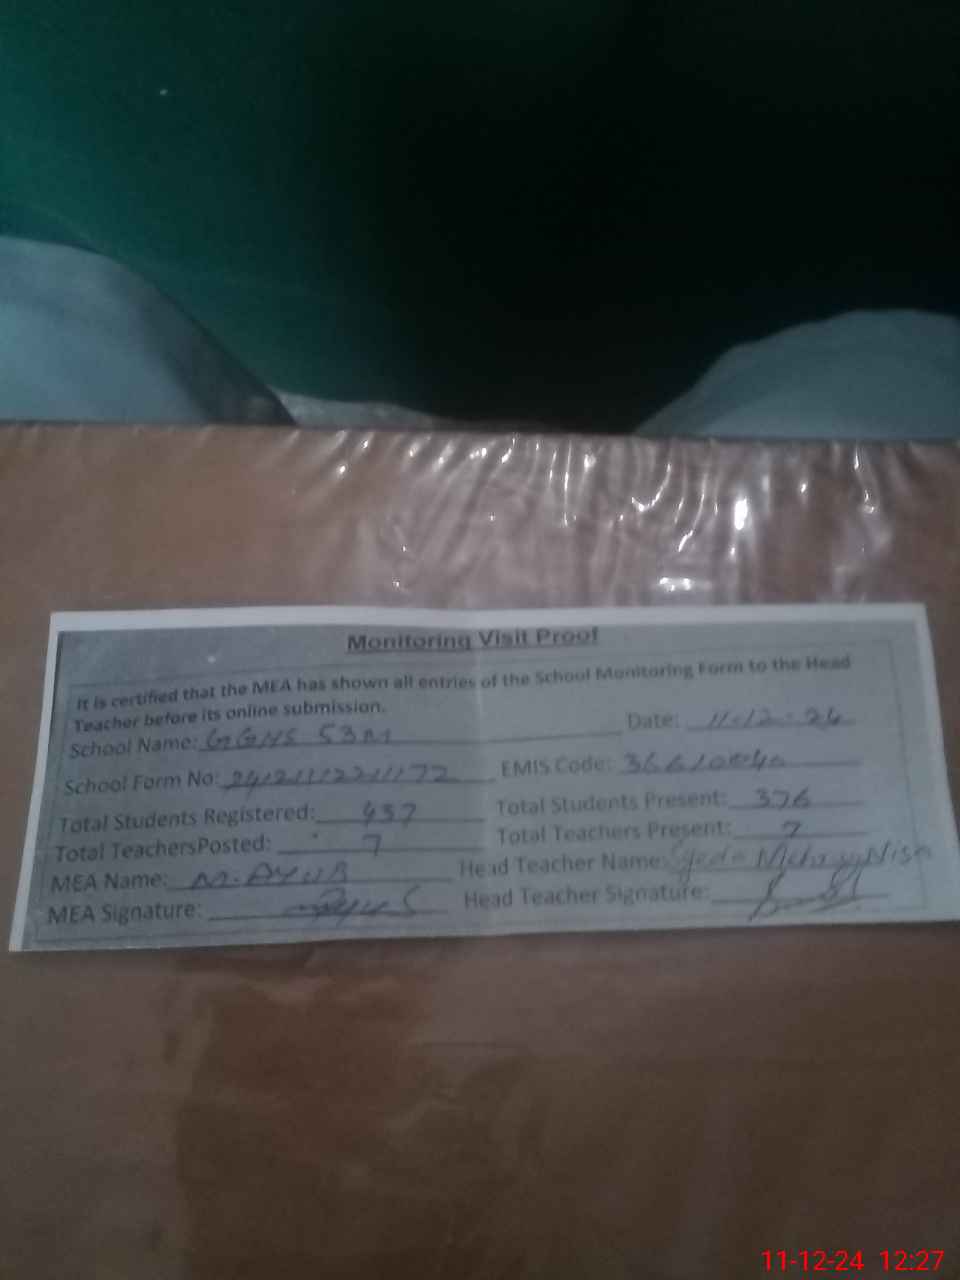 Monitoring Visit Proof
It is certified that the MEA has shown all entries of the School Monitoring Form to the Head
Teacher before its online submission.
School Name: GGHS 53M Date: 11-12-24
School Form No: EMIS Code:
Total Students Registered: 437 Total Students Present: 376
Total TeachersPosted: 7 Total Teachers Present: 7
MEA Name: M. AYUB Head Teacher Name: Syeda Nisa
MEA Signature: Head Teacher Signature:
11-12-24 12:27